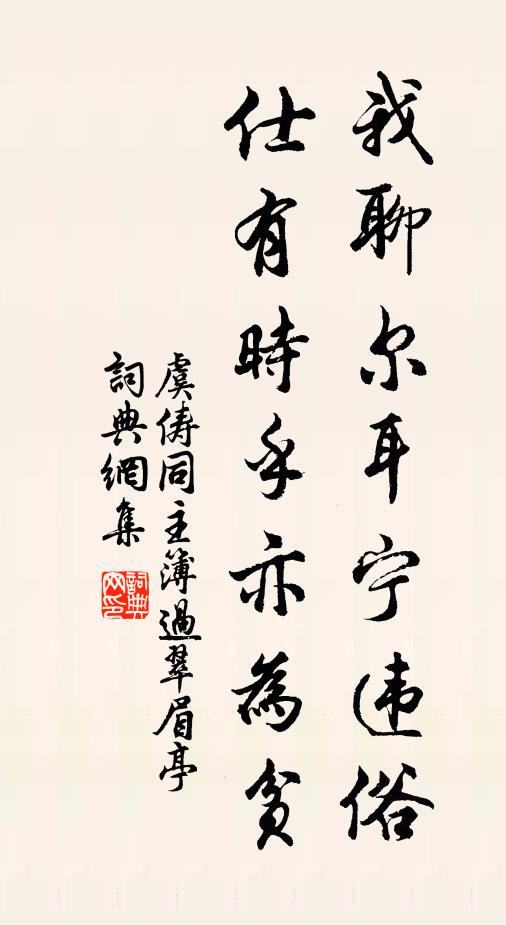 我聊尔耳宁违俗
仕有時乎亦為貧
虞俦同主簿過翠眉亭
詞典網集
詞典网印